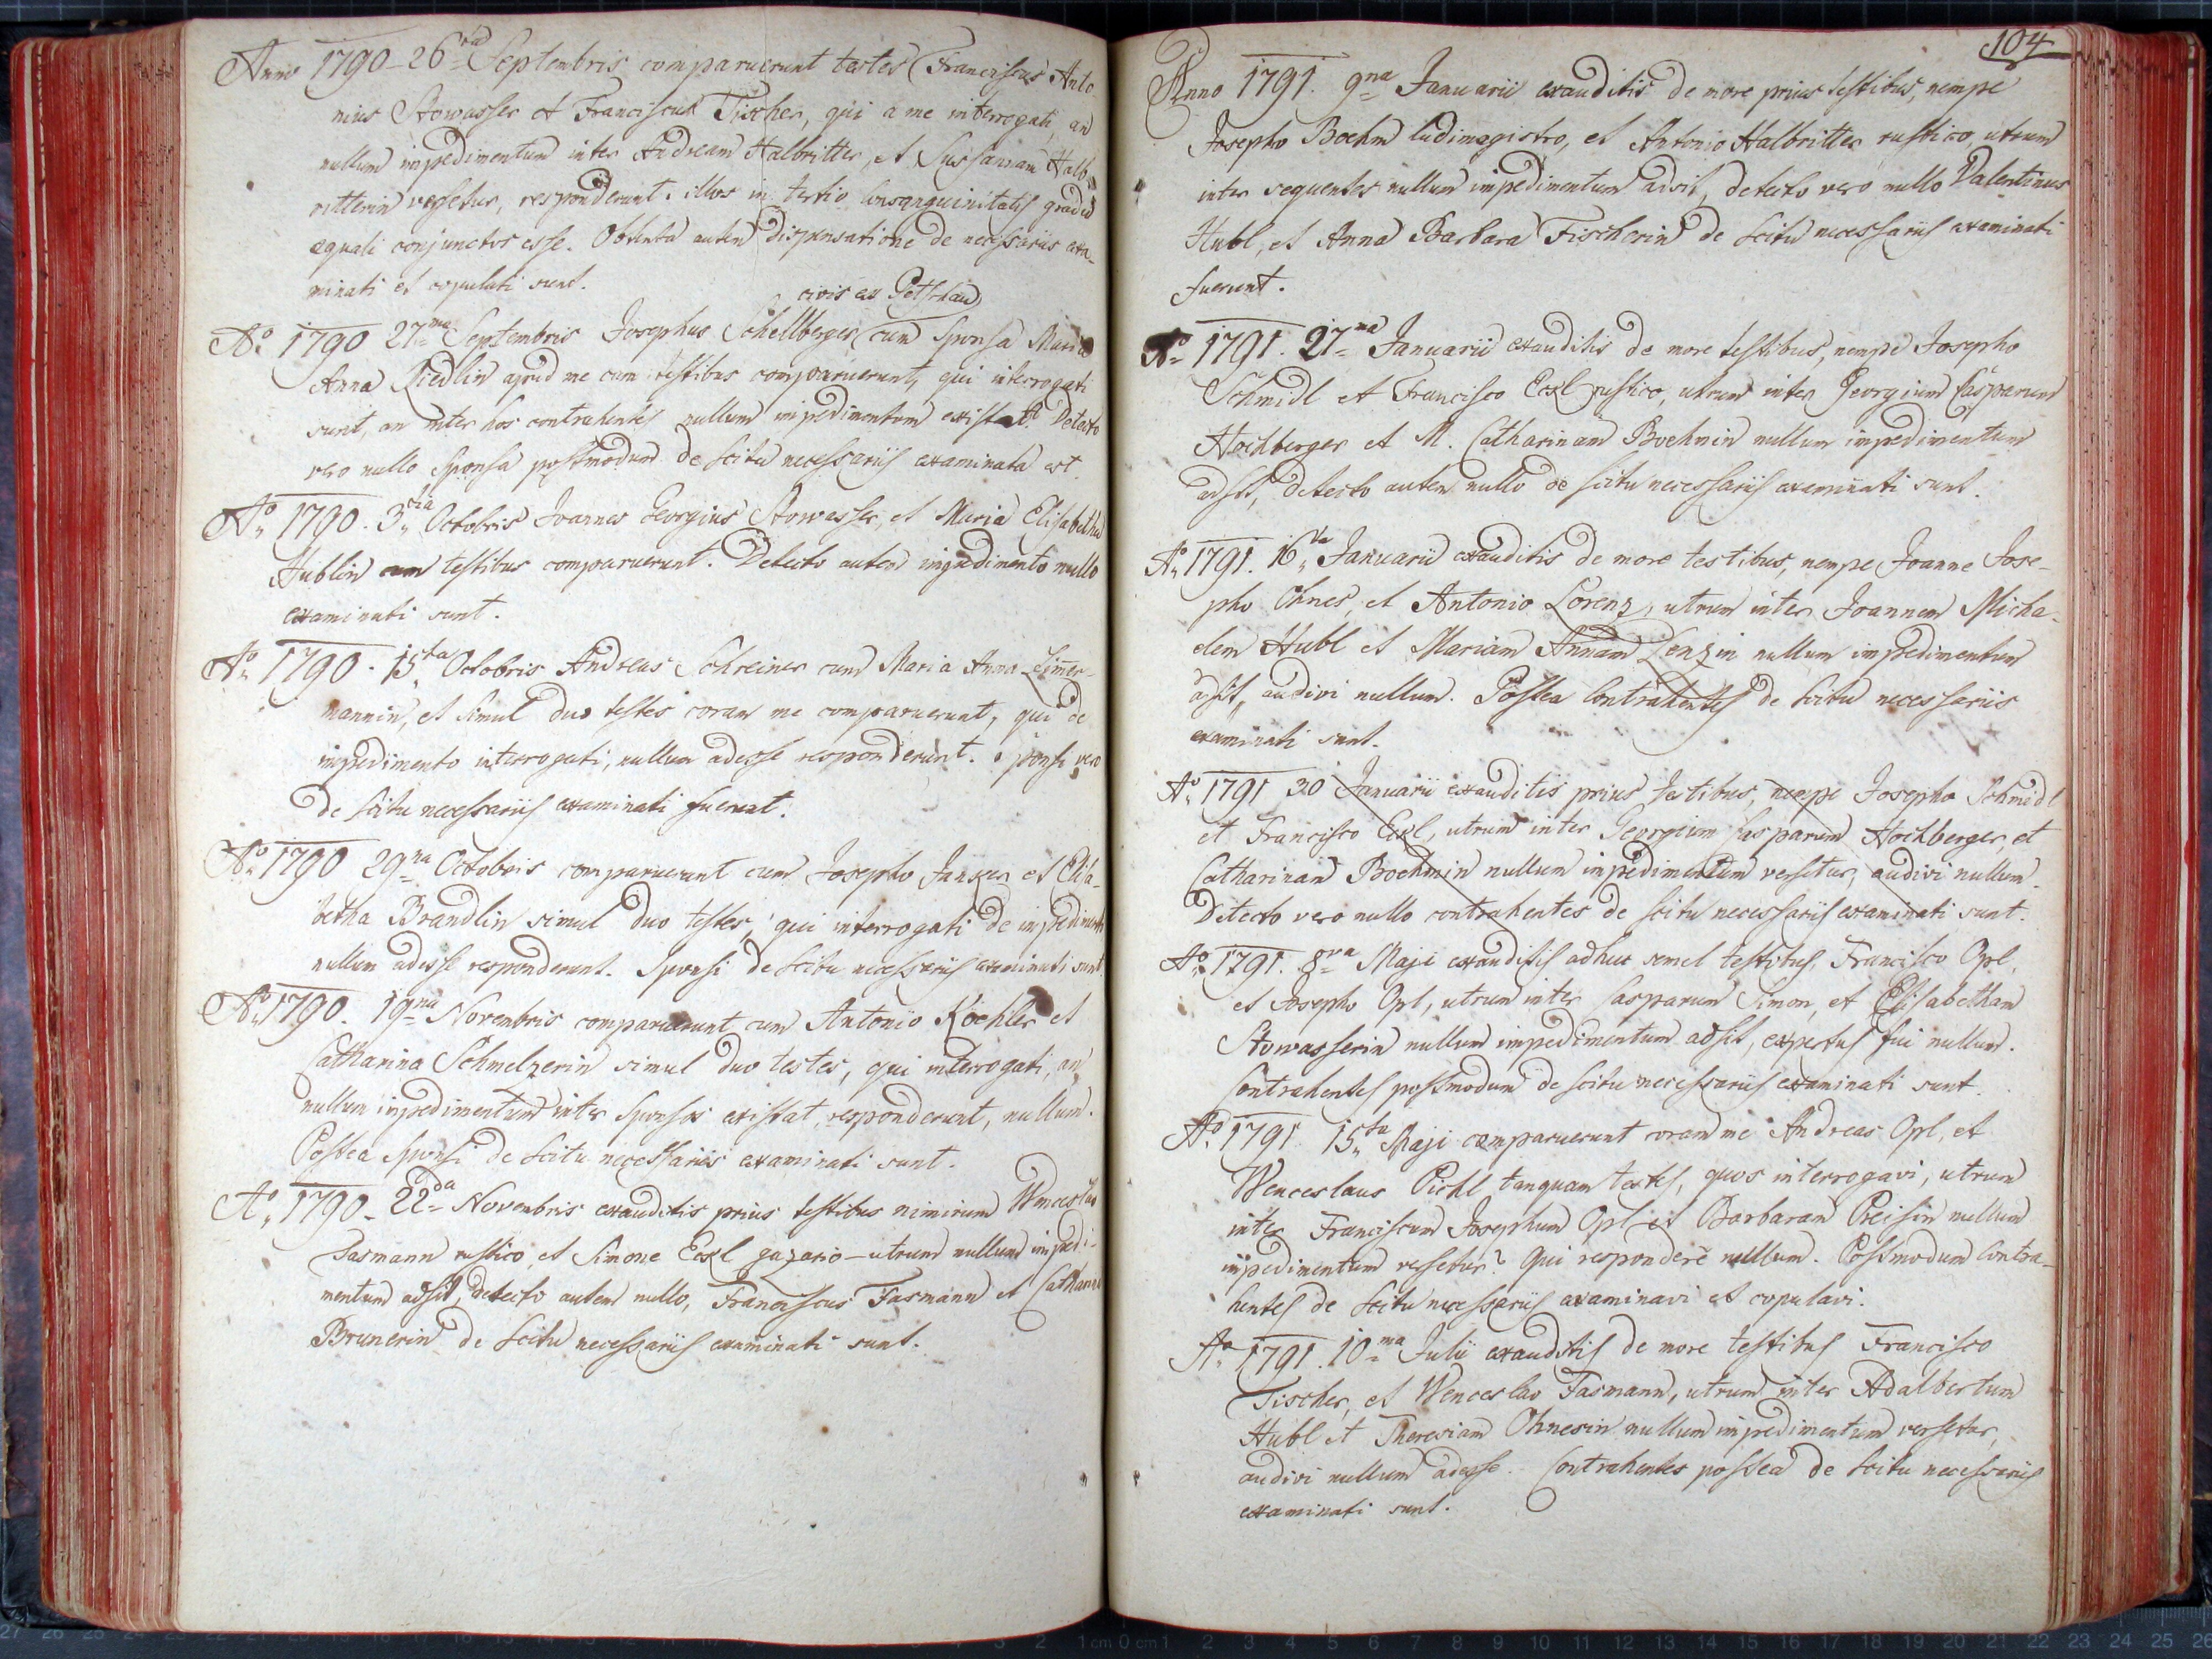 Anno 1790 - 26ta Septembris comparuerunt testes Franciscus Anto-
nius Stowasser et Franciscus Tischer, qui a me interrogati, an
nullum impedimentum inter Andream Halbritter, et Susannam Halb-
ritterin versetur, responderunt: illos in tertio consanguinitatis gradu
aequali conjunctos esse. Obtenta autem dispensatione de necessariis exa-
minati et copulati sunt.
civis ex Petschau
Ao 1790 27ma Septembris Josephus Schellberger cum Sponsa Maria
Anna Riedlin apud me cum testibus comparuerunt, qui interrogati
sunt, an inter hos contrahentes nullum impedimentum existat? Detecto
vero nullo Sponsa postmodum de scitu necessariis examinata est
Ao 1790. 3tia Octobris Joannes Georgius Stowasser, et Maria Elisabetha
Hublin cum testibus comparuerunt. Detecto autem impedimento nullo
examinati sunt.
Ao 1790. 15ta Octobris Andreas Schreiner cum Maria Anna Zimer-
mannin, et simul duo testes coram me comparuerunt, qui de
impedimento interrogati, nullum adesse responderunt. Sponsi vero
de scitu necessariis examinati fuerunt.
Ao 1790 29na Octobris comparuerunt cum Josepho Junker et Elisa-
betha Brandlin simul duo testes, qui interrogati de impedimento
nullum adesse responderunt. Sponsi de scitu necessariis examinati sunt
Ao 1790. 19na Novembris comparuerunt cum Antonio Köehler et
Catharina Schmelzerin simul duo testes, qui interrogati, an
nullum impedimentum inter Sponsos existat, responderunt, nullum.
Postea Sponsi de scitu necessariis examinati sunt.
Ao 1790 - 22da Novembris exauditis prius testibus nimirum Wenceslao
Tasmann rustico, et Simone Eckl gazario - utrum nullum impedi-
mentum adsit, detecto autem nullo, Franciscus Tasmann et Catharina
Brunerin de scitu necessariis examinati sunt.
104
Anno 1791. 9na Januarii exauditis de more prius testibus, nempe
Josepho Boehm ludimagistro, et Antonio Halbritter rustico, utrum
inter sequentes nullum impedimentum adsit, detecto vero nullo Valentinus
Hubl, et Anna Barbara Tischerin de scitu necessariis examinati
fuerunt.
Ao 1791. 27ma Januarii exauditis de more testibus, nempe Josepho
Schmidl et Francisco Eckl rustico, utrum inter Georgium Casparum
Hochberger et M. Catharinam Boehmin nullum impedimentum
adsit, detecto autem nullo de scitu necessariis examinati sunt.
Ao 1791. 16ta Januarii exauditis de more testibus, nempe Joanne Jose-
pho Ohnes, et Antonio Lorenz, utrum inter Joannem Micha-
elem Hubl et Mariam Annam Lenzin nullum impedimentum
adsit, audivi nullum. Postea Contrahentes de scitu necessariis
examinati sunt.
Ao 1791 30 Januarii exauditis prius testibus, nempe Josepho Schmidl
et Francisco Eckl, utrum inter Georgium Casparum Hochberger, et
Catharinam Boehmin nullum impedimentum versetur, audivi nullum.
Detecto vero nullo contrahentes de scitu necessariis examinati sunt.
Ao 1791. 8va Maji exauditis adhuc semel testibus, Francisco Opl,
et Josepho Opl, utrum inter Casparum Simon, et Elisabetham
Stowasserin nullum impedimentum adsit, expertus fui nullum.
Contrahentes postmodum de scitu necessariis examinati sunt.
Ao 1791. 15ta Maji comparuerunt coram me Andreas Opl, et
Wenceslaus Pichl tanquam testes, quos interrogavi, utrum
inter Franciscum Josephum Opl et Barbaram Preisin nullum
impedimentum versetur? Qui respondere nullum. Postmodum Contra-
hentes de scitu necessariis examinavi et copulavi.
Ao 1791. 10ma Julii exauditis de more testibus Francisco
Tischer, et Wenceslao Tasmann, utrum inter Adalbertum
Hubl et Theresiam Ohnesin nullum impedimentum versetur,
audivi nullum adesse. Contrahentes postea de scitu necessariis
examinati sunt.